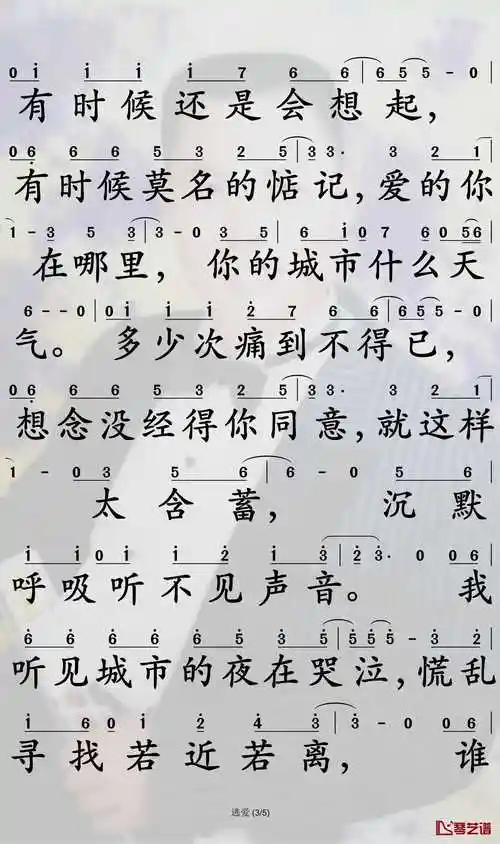 0 i i i i 7 6 6 | 6 5 5 - 0 |
有时候还是会想起，
0 6 6 6 5 3 2 5 | 3 3· 3 2 1 |
有时候莫名的惦记，爱的你
1 - 3 5 3 | 3 - 0 3 5 | 6 1 0 7 6 0 5 6 |
在哪里， 你的城市什么天
6 - - 0 | 0 i i i 2 7 6 6 | 6 5 5 - 0 |
气。多少次痛到不得已，
0 6 6 6 5 3 2 5 | 3 3· 3 2 1 |
想念没经得你同意，就这样
1 - 0 3 5 6 | 6 - 0 5 6 |
太含蓄， 沉默
i i 0 i i 2 i 3 | 2 3· 0 0 6 |
呼吸听不见声音。 我
6 6 6 6 6 6 3 5 | 5 5 5 - 3 2 |
听见城市的夜在哭泣，慌乱
i 6 0 i 2 4 3 | 3 - 0 0 6 |
寻找若近若离， 谁
逃爱 (3/5)
琴艺谱